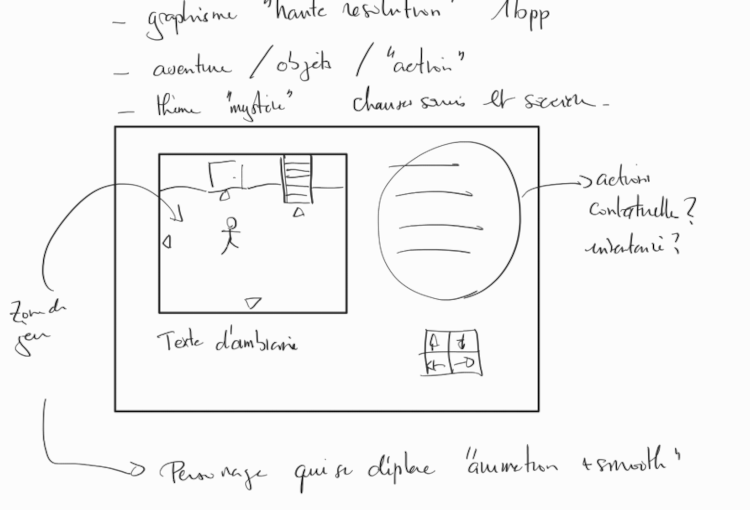 – graphisme "haute resolution" 16pp
– aventure / objets / "action"
– thème "mystère" chauves souris et
→ action
contextuelle ?
inventaire ?
Zone de
jeu
Texte d'ambiance
→ Personnage qui se déplace "animation + smooth"